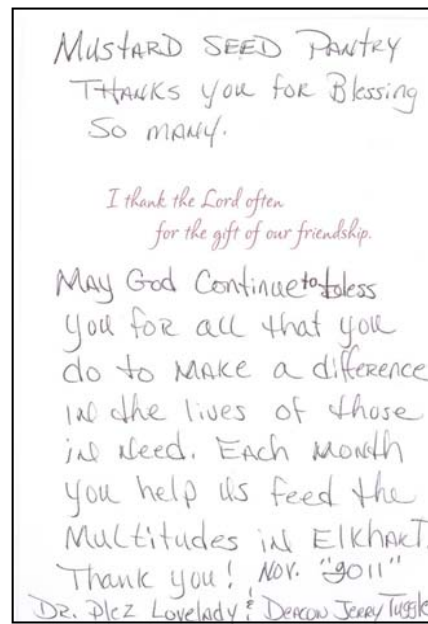 MUSTARD SEED PANTRY
THANKS you FOR Blessing
SO MANY.
I thank the Lord often
for the gift of our friendship.
MAY God Continue to bless
you for all that you
do to MAKE a difference
IN the lives of those
in Need. EACH MONTH
you help us feed the
Multitudes in ElKHART.
Thank you! NOV. "2011"
DR. Plez Lovelady & DEACON JERRY Tuggle